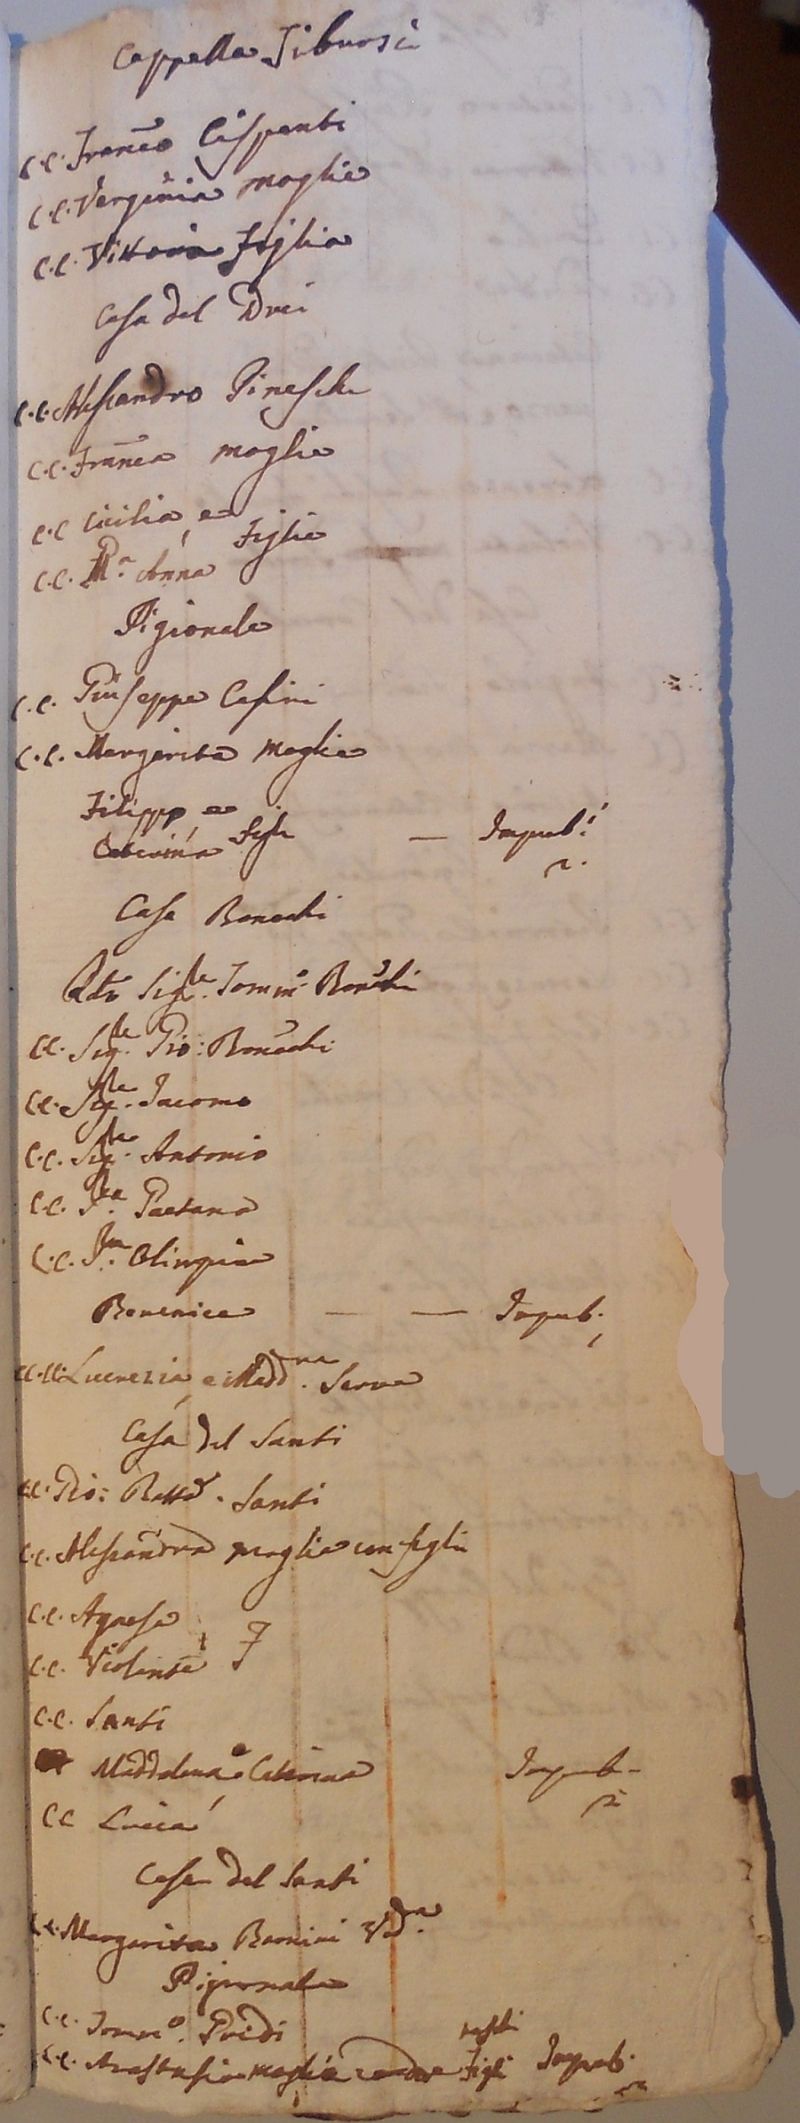 Cappella Tiburzi
C.C. Franc͠o Cispanti
C.C. Verginia moglie
C.C. Vittoria figlia
Casa del Drei
C.C. Alessandro Pineschi
C.C. Fran͠ca moglie
C.C. Cicilia, e
Figlie
C.C. M.ª Anna
Pigionale
C.C. Giuseppe Casini
C.C. Margarita moglie
Filippo e
Caterina figli — Impub.i
2.
Casa Bonechi
Sig.re Tomm.º Bonechi
C.C. Sig.re Gio: Bonechi
C.C. Sig.re Iacomo
C.C. Sig.re Antonio
C.C. S.ra Gaetana
C.C. S.ra Olimpia
Berenice — — Impub.
1
C.C. C.C. Lucrezia, e Madd.na Serve
Casa del Santi
C.C. Gio: Batt.a Santi
C.C. Alessandra moglie con figli
C.C. Agnesa
C.C. Violante
C.C. Santi
Maddalena e Caterina Impub.
2
C.C. Lucia
Casa del Santi
C.C. Margarita Barnini Ved.a
Pigionale
C.C. Tomm.º Guidi
C.C. Anastasia moglie con due Figli Impub.
2